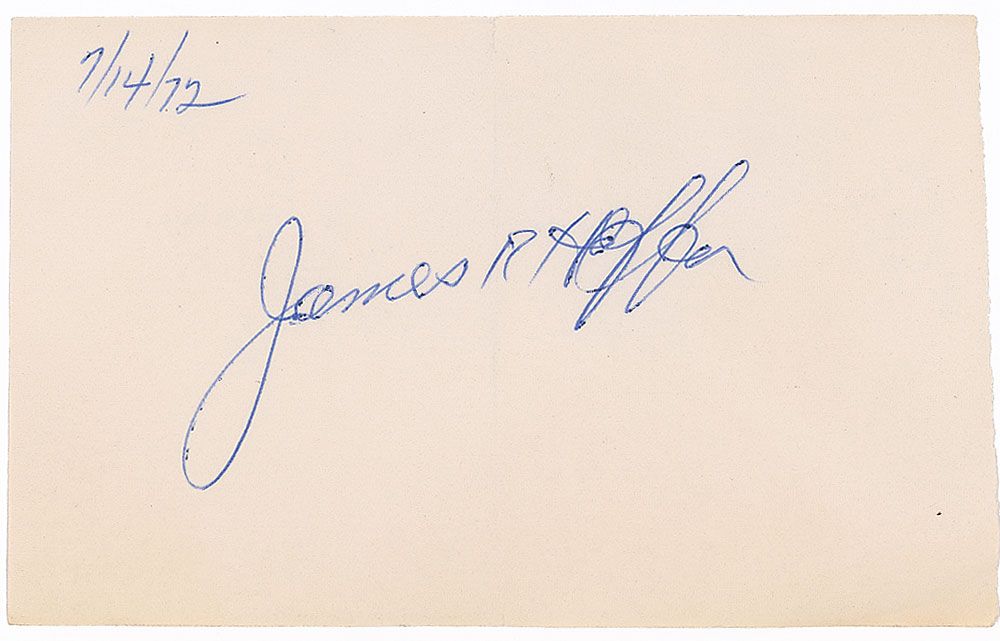 7/14/72
James R Hoffa